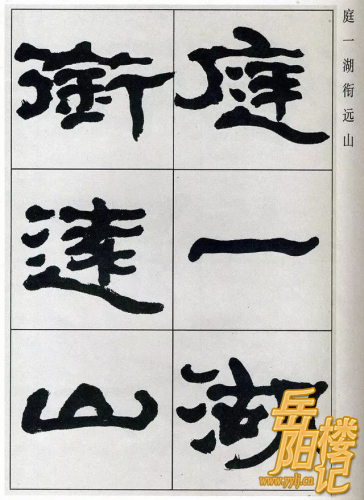 庭一湖衔远山
庭一湖
銜遠山
岳阳楼记
www.yylj.cn